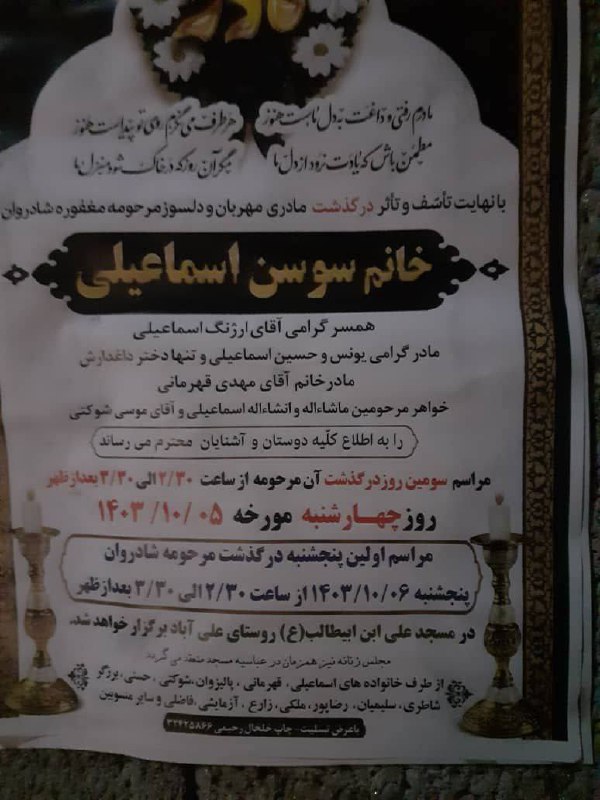 مادر
مادرم رفتی و داغت به دل ما است هنوز
هر طرف می نگرم روی تو پیداست هنوز
مطمئن باش که یادت نرود از دل ما
مگر آن روز که در خاک شود منزل ما
با نهایت تأسّف و تأثر درگذشت مادری مهربان و دلسوز مرحومه مغفوره شادروان
خانم سوسن اسماعیلی
همسر گرامی آقای ارژنگ اسماعیلی
مادر گرامی یونس و حسین اسماعیلی و تنها دختر داغدارش
مادر خانم آقای مهدی قهرمانی
خواهر مرحومین ماشاءاله و انشاءاله اسماعیلی و آقای موسی شوکتی
را به اطلاع کلّیه دوستان و آشنایان محترم می رساند
مراسم سومین روز درگذشت آن مرحومه از ساعت ۲/۳۰ الی ۳/۳۰ بعدازظهر
روز چهارشنبه مورخه ۱۴۰۳/۱۰/۰۵
مراسم اولین پنجشنبه درگذشت مرحومه شادروان
پنجشنبه ۱۴۰۳/۱۰/۰۶ از ساعت ۲/۳۰ الی ۳/۳۰ بعدازظهر
در مسجد علی ابن ابیطالب(ع) روستای علی آباد برگزار خواهد شد.
مجلس زنانه نیز همزمان در عباسیه مسجد منعقد می گردد
از طرف خانواده های اسماعیلی، قهرمانی، پالیزوان، شوکتی، حسنی، برزگر
شاطری، سلیمیان، رضاپور، ملکی، زارع، آزمایشی، فاضلی و سایر منسوبین
با عرض تسلیت - چاپ خلخال رحیمی ۳۲۴۲۵۸۶۶